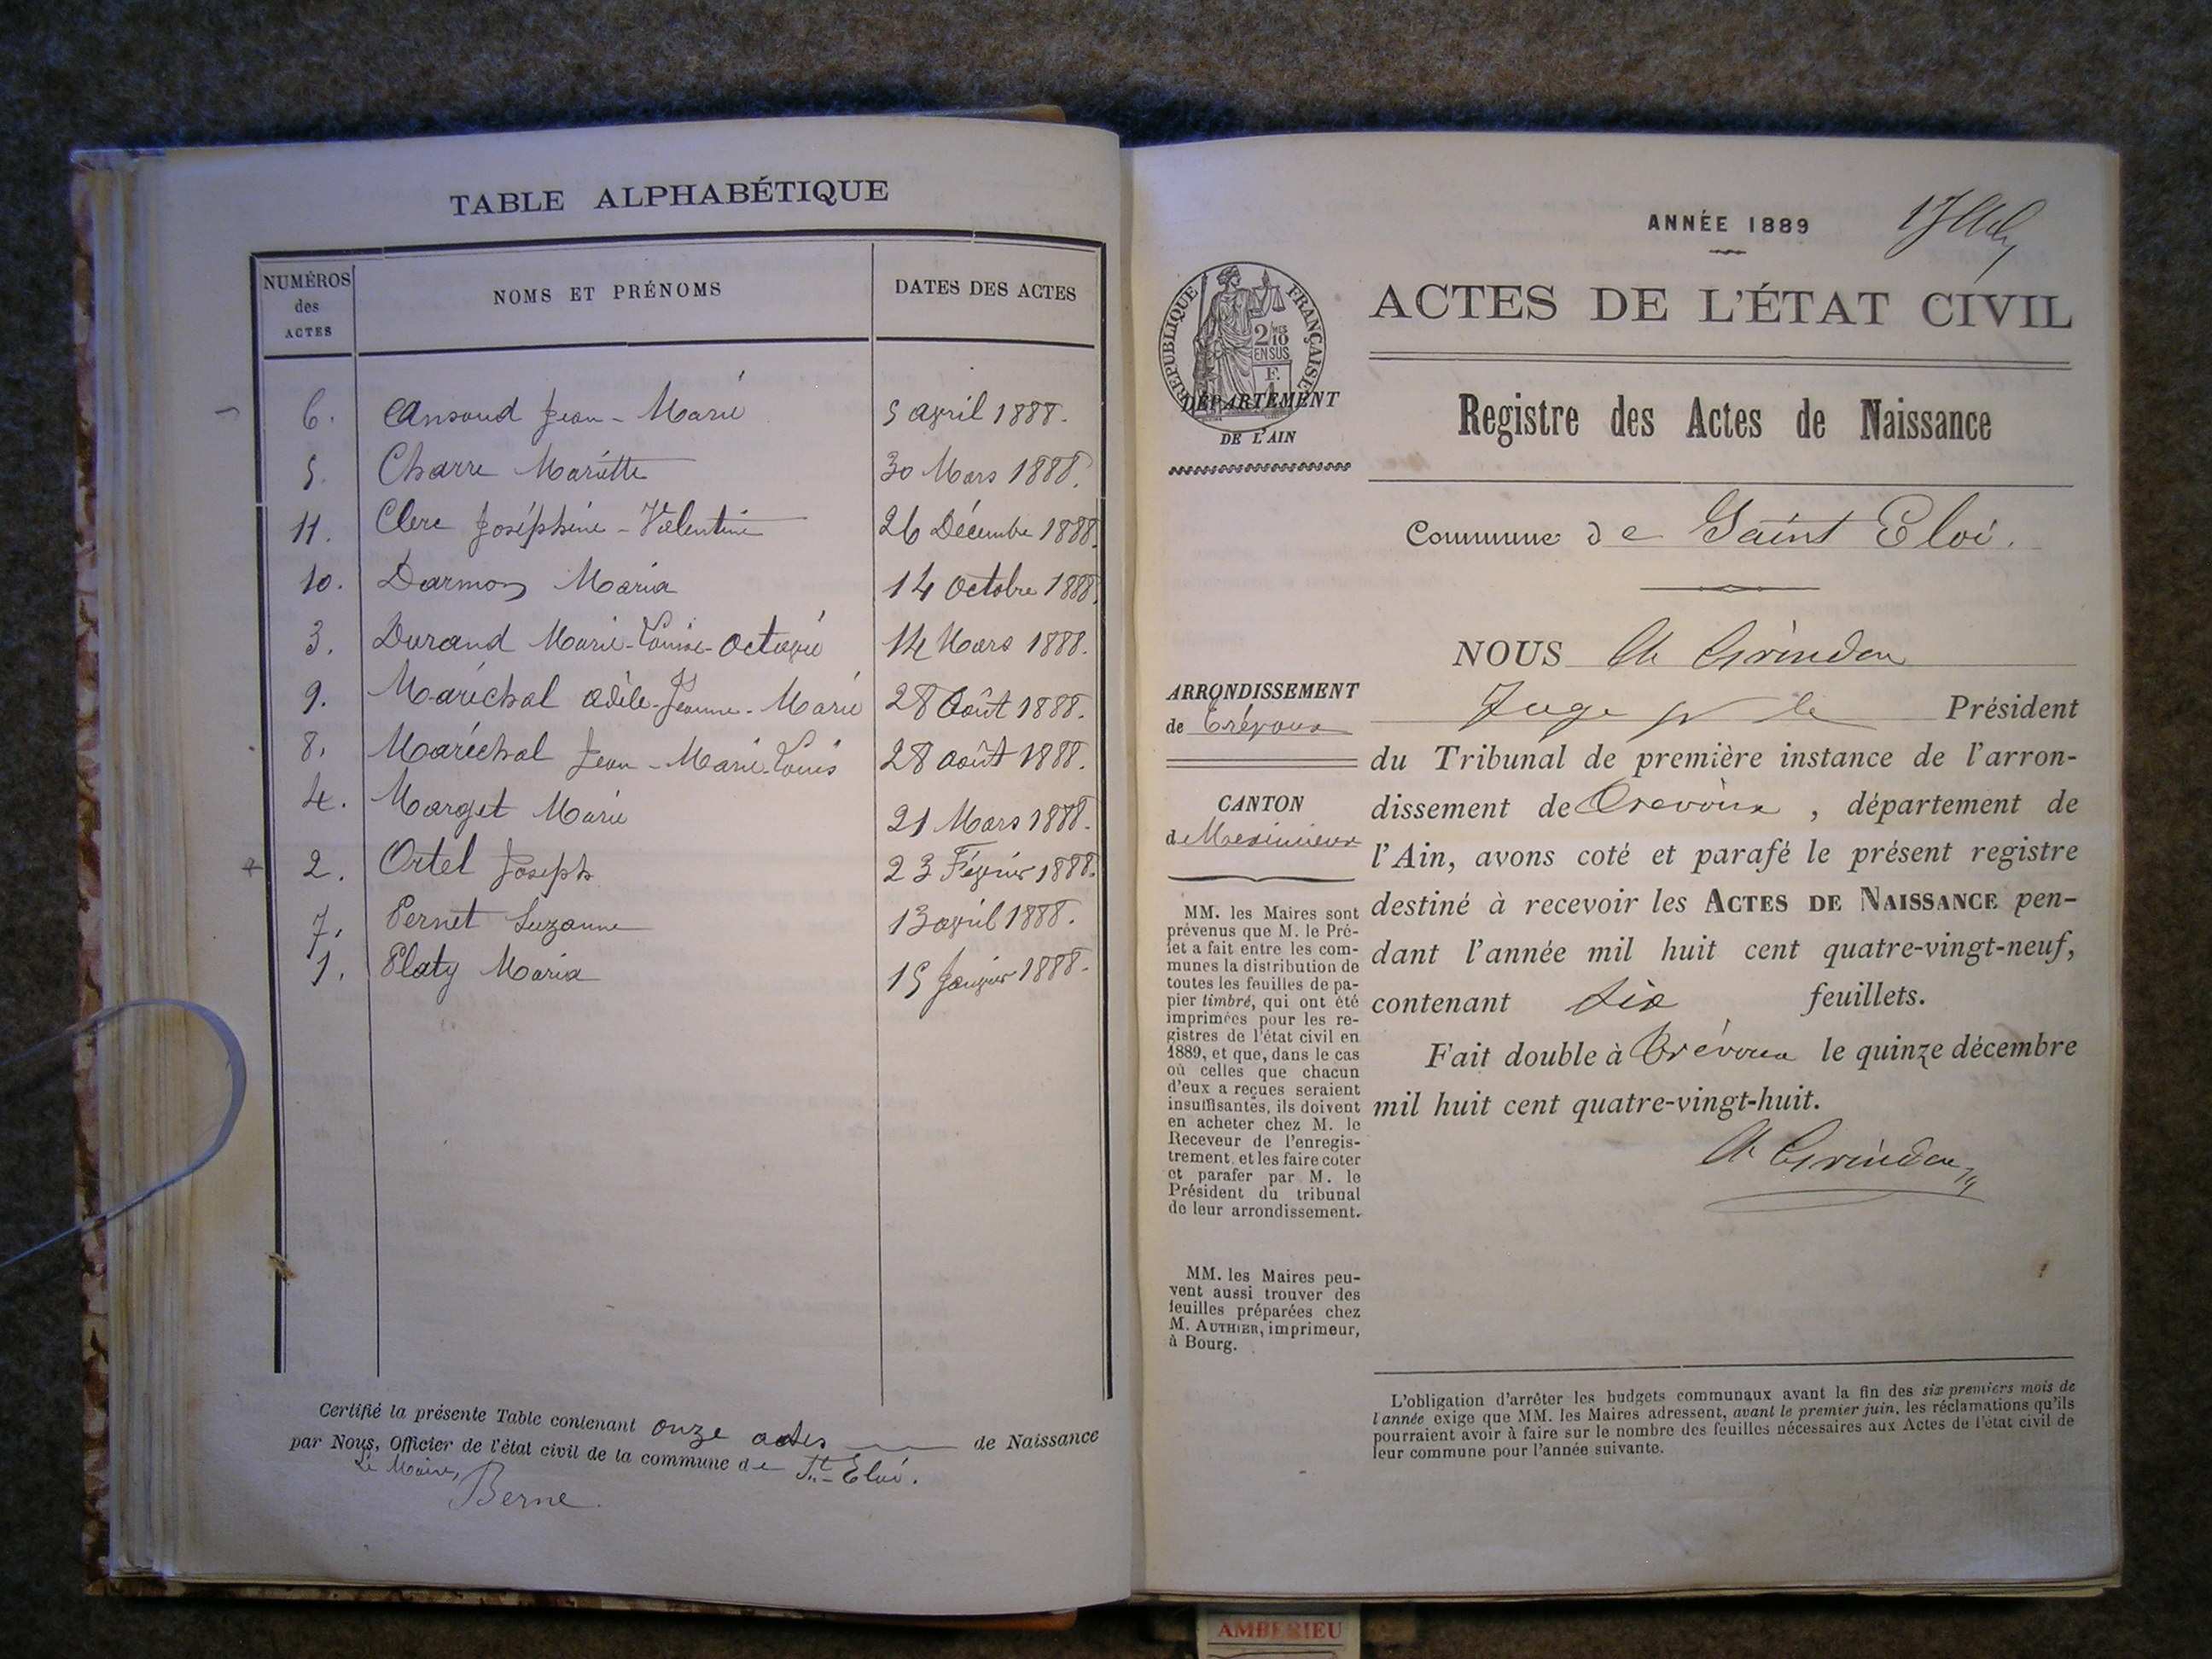 TABLE ALPHABÉTIQUE
NUMÉROS des ACTES
NOMS ET PRÉNOMS
DATES DES ACTES
6. Ansoud Jean-Marie 5 avril 1888.
5. Charre Mariette 30 Mars 1888.
11. Clerc Joséphine-Valentine 26 Décembre 1888.
10. Darmon Maria 14 Octobre 1888.
3. Durand Marie-Louise-Octavie 14 Mars 1888.
9. Maréchal Adèle-Jeanne-Marie 28 Août 1888.
8. Maréchal Jean-Marie-Louis 28 août 1888.
4. Marget Marie 21 Mars 1888.
2. Ortel Joseph 23 Février 1888.
7. Pernet Suzanne 13 avril 1888.
1. Platy Maria 15 Janvier 1888.
Certifié la présente Table contenant onze actes de Naissance
par Nous, Officier de l'état civil de la commune de St-Eloi.
Le Maire,
Berne
ANNÉE 1889
RÉPUBLIQUE FRANÇAISE
2/10 EN SUS
ACTES DE L'ÉTAT CIVIL
DÉPARTEMENT
DE L'AIN
Registre des Actes de Naissance
Commune de Saint Eloi.
ARRONDISSEMENT
de Trévoux
CANTON
de Meximieux
MM. les Maires sont
prévenus que M. le Pré-
fet a fait entre les com-
munes la distribution de
toutes les feuilles de pa-
pier timbré, qui ont été
imprimées pour les re-
gistres de l'état civil en
1889, et que, dans le cas
où celles que chacun
d'eux a reçues seraient
insuffisantes, ils doivent
en acheter chez M. le
Receveur de l'enregis-
trement, et les faire coter
et parafer par M. le
Président du tribunal
de leur arrondissement.
MM. les Maires peu-
vent aussi trouver des
feuilles préparées chez
M. AUTHIER, imprimeur,
à Bourg.
NOUS Ch Grindon
Juge pr le Président
du Tribunal de première instance de l'arron-
dissement de Trévoux, département de
l'Ain, avons coté et parafé le présent registre
destiné à recevoir les ACTES DE NAISSANCE pen-
dant l'année mil huit cent quatre-vingt-neuf,
contenant six feuillets.
Fait double à Trévoux le quinze décembre
mil huit cent quatre-vingt-huit.
Ch Grindon
L'obligation d'arrêter les budgets communaux avant la fin des six premiers mois de
l'année exige que MM. les Maires adressent, avant le premier juin, les réclamations qu'ils
pourraient avoir à faire sur le nombre des feuilles nécessaires aux Actes de l'état civil de
leur commune pour l'année suivante.
AMBERIEU